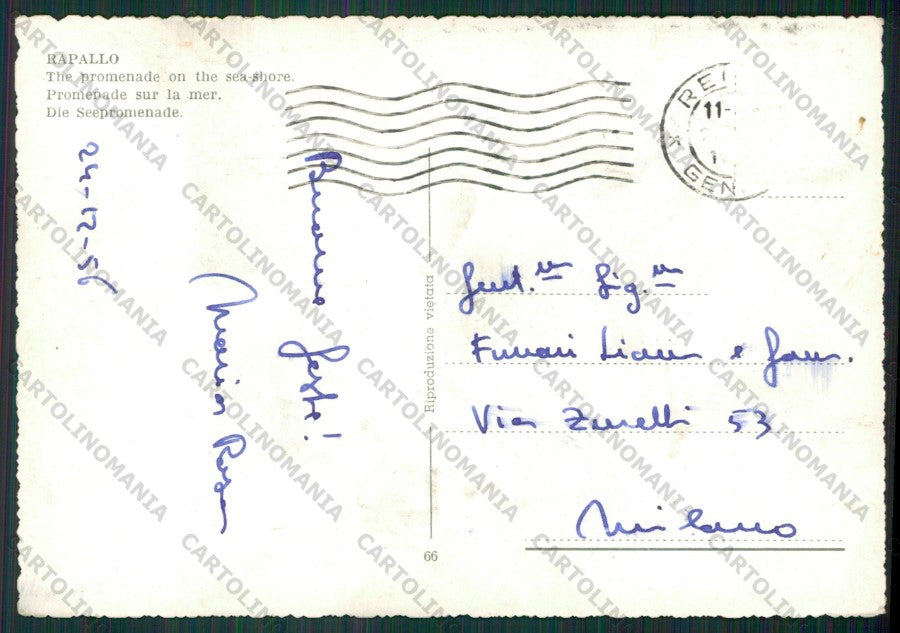 RAPALLO
The promenade on the sea-shore.
Promenade sur la mer.
Die Seepromenade.
24-12-56
Buone feste!
Maria Rosa
Riproduzione vietata
66
11-
GEN
Gent.ma Sig.na
Funari e fam.
Via 53
Milano
CARTOLINOMANIA